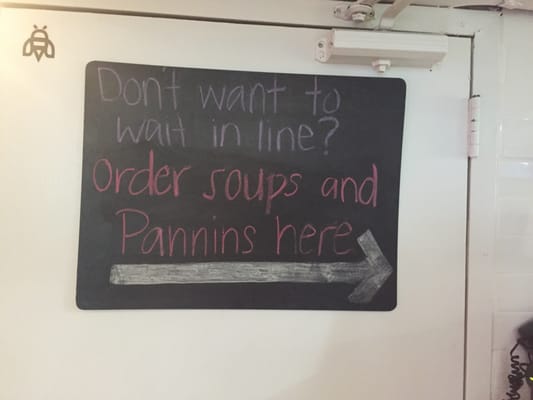 Don't want to
wait in line?
Order soups and
Pannins here